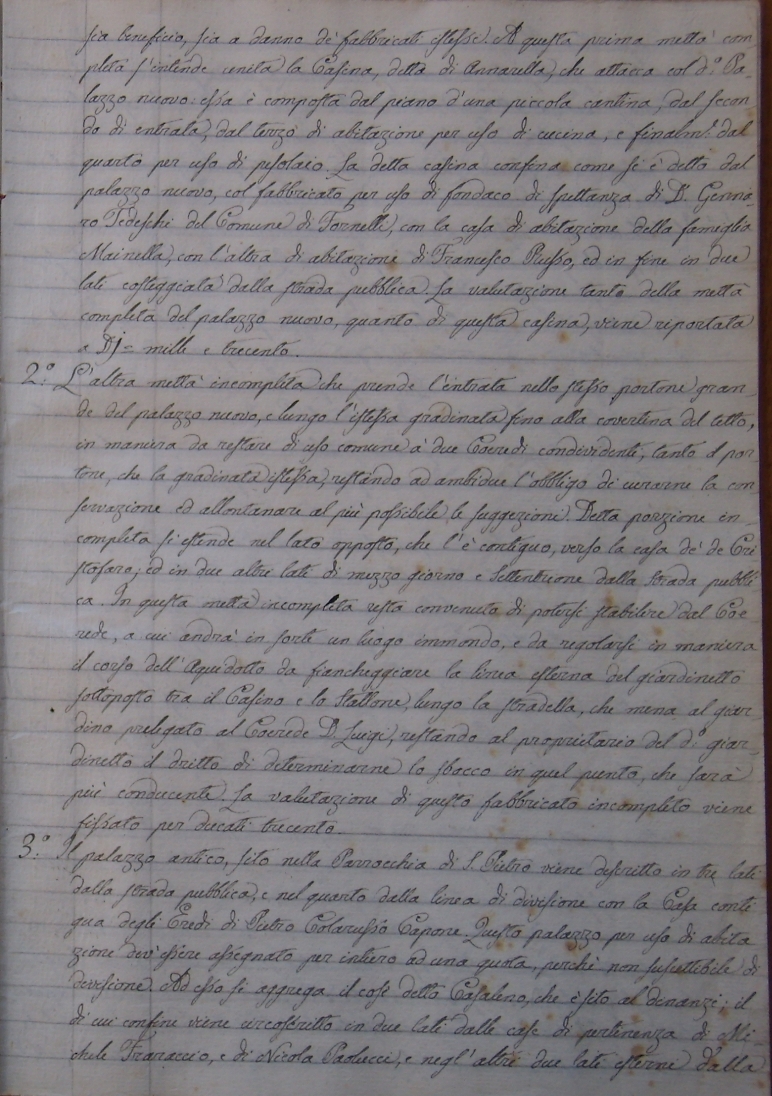 sia beneficio, sia a danno de' fabbricati istessi. A questa prima mettà com
pleta s'intende unita la Casina, detta di Annarella, che attacca col d.° Pa-
lazzo nuovo: essa è composta dal piano d'una piccola cantina, dal secon
do di entrata, dal terzo di abitazione per uso di cucina, e finalm.e dal
quarto per uso di pesolaio. La detta casina confina come si è detto dal
palazzo nuovo, col fabbricato per uso di fondaco di spettanza di D. Genna
ro Tedeschi del Comune di Fornelli, con la casa di abitazione della famiglia
Mainella, con l'altra di abitazione di Francesco Russo, ed in fine in due
lati costeggiata dalla strada pubblica. La valutazione tanto della mettà
completa del palazzo nuovo, quanto di questa casina, viene riportata
a mille e trecento.
2.° L'altra mettà incompleta che prende l'entrata nello stesso portone gran-
de del palazzo nuovo, e lungo l'istessa gradinata fino alla covertina del tetto,
in maniera da restare di uso comune a' due Coeredi condividenti, tanto il por-
tone, che la gradinata istessa, restando ad ambidue l'obbligo di curarne la con
servazione ed allontanare al più possibile le suggezioni. Detta porzione in-
completa si estende nel lato opposto, che l'è contiguo, verso la casa de' de Cri
stofaro; ed in due altri lati di mezzo giorno e settentrione dalla strada pubbli
ca. In questa mettà incompleta resta convenuto di potersi stabilire dal Coe
rede, a cui andrà in sorte un luogo immondo, e da regolarsi in maniera
il corso dell'Aquidotto da fiancheggiare la linea esterna del giardinetto
sottoposto tra il Casino e lo Stallone, lungo la stradella, che mena al giar-
dino prelegato al Coerede D. Luigi, restando al proprietario del d.° giar-
dinetto il dritto di determinarne lo sbocco in quel punto, che sarà
più conducente. La valutazione di questo fabbricato incompleto viene
fissato per ducati trecento.
3.° Il palazzo antico, sito nella Parrocchia di S. Pietro viene descritto in tre lati
dalla strada pubblica, e nel quarto dalla linea di divisione con la Casa conti
gua degli Eredi di Pietro Colarusso Capone. Questo palazzo per uso di abita
zione dev'essere assegnato per intiero ad una quota, perchè non suscettibile di
divisione. Ad esso si aggrega il così detto Casaleno, che è sito al dinanzi; il
di cui confine viene circoscritto in due lati dalle case di pertinenza di Mi-
chele Fraraccio, e di Nicola Paolucci, e negl'altri due lati esterni dalla